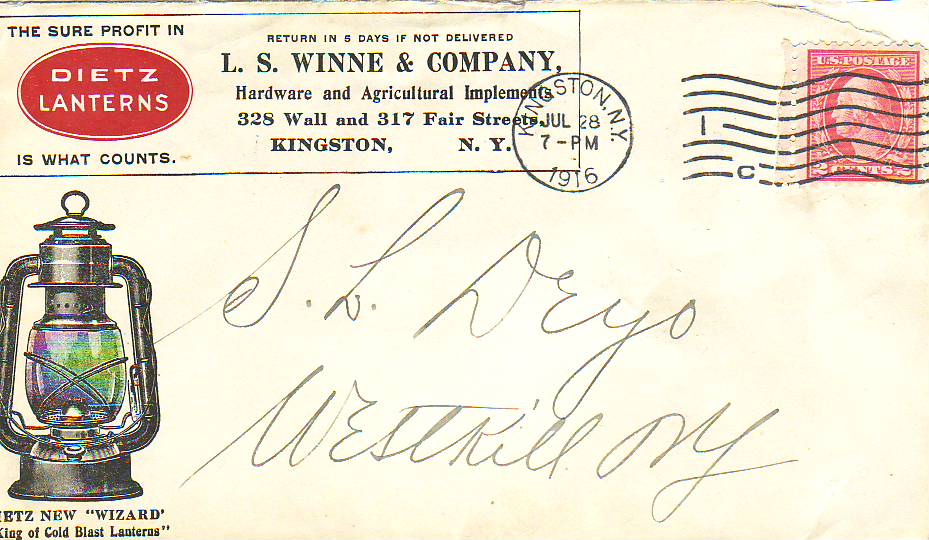 THE SURE PROFIT IN
DIETZ
LANTERNS
IS WHAT COUNTS.
RETURN IN 5 DAYS IF NOT DELIVERED
L. S. WINNE & COMPANY,
Hardware and Agricultural Implements
328 Wall and 317 Fair Streets,
KINGSTON, N. Y.
KINGSTON, N.Y.
JUL 28
7-PM
1916
1
C
U.S. POSTAGE
2 CENTS 2
S. L. Deyo
Westkill NY
IETZ NEW "WIZARD'
King of Cold Blast Lanterns"